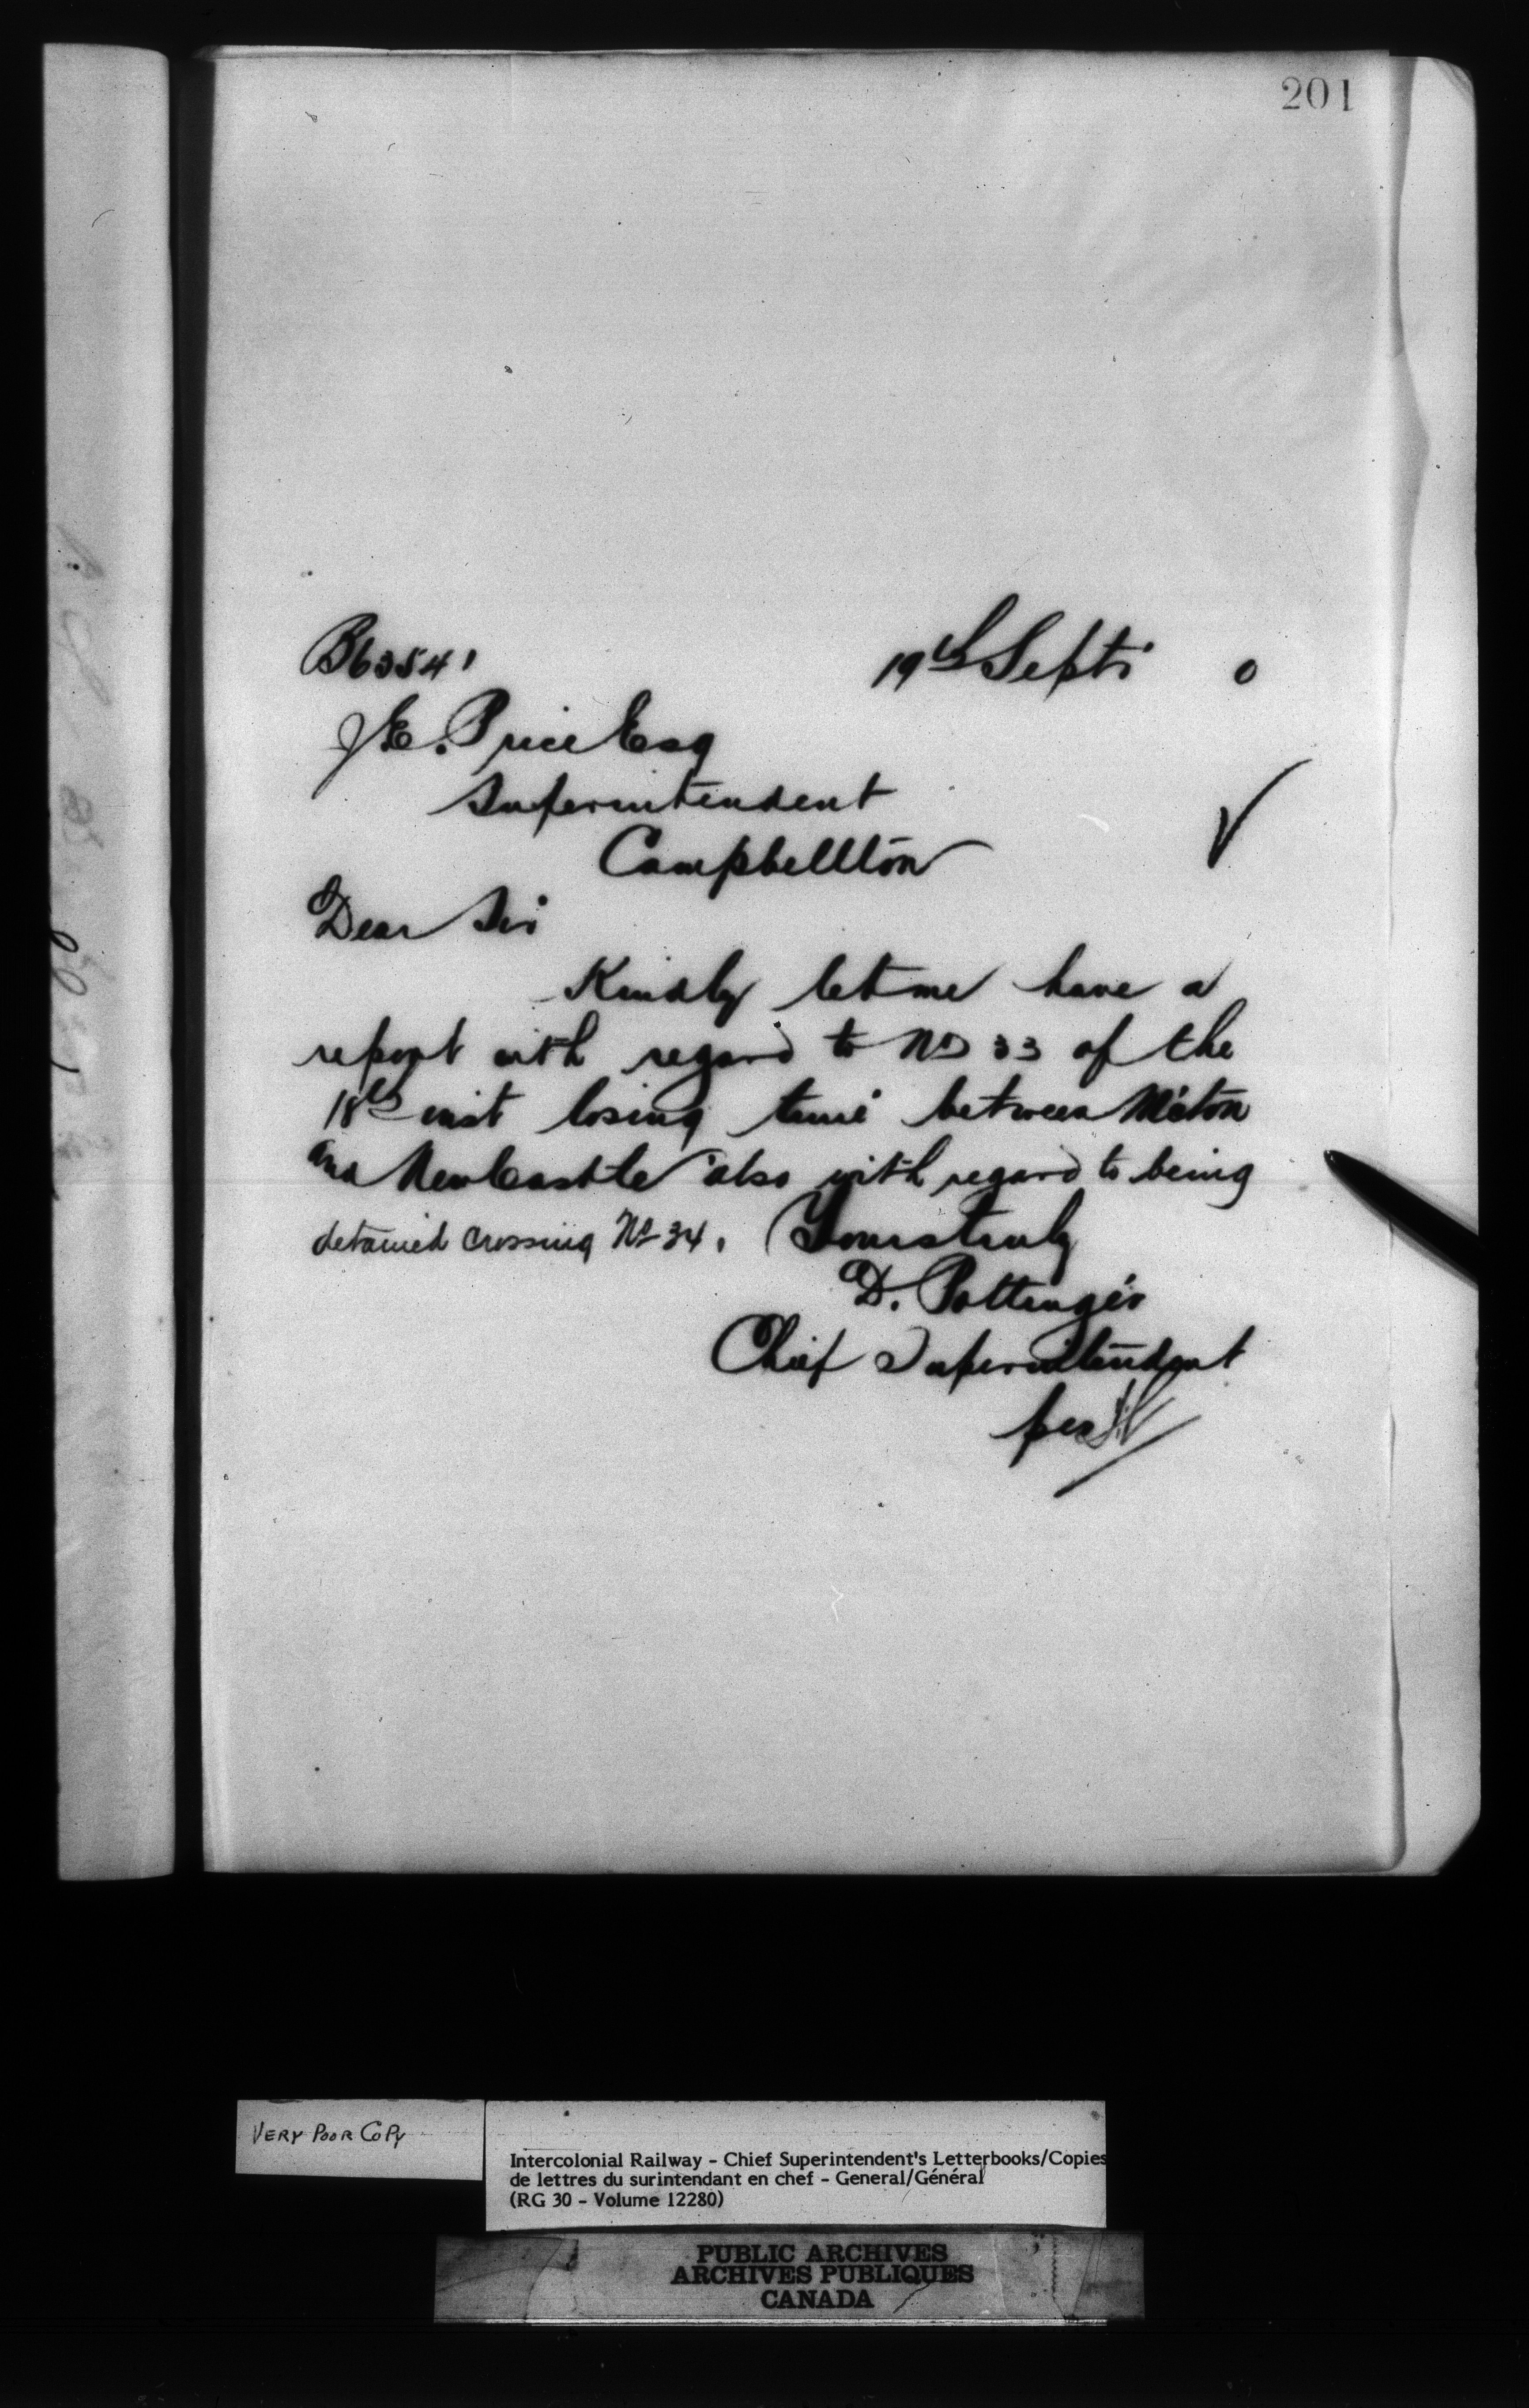 201
B6354
19th Sept. 0
J.E. Price Esq
Superintendent
Campbellton
Dear Sir
Kindly let me have a
report with regard to No 33 of the
18th inst losing time between M'cton
and NewCastle also with regard to being
detained crossing No 34. Yours truly
D. Pottinger
Chief Superintendent
per
VERY POOR COPY
Intercolonial Railway - Chief Superintendent's Letterbooks/Copies
de lettres du surintendant en chef - General/Général
(RG 30 - Volume 12280)
PUBLIC ARCHIVES
ARCHIVES PUBLIQUES
CANADA